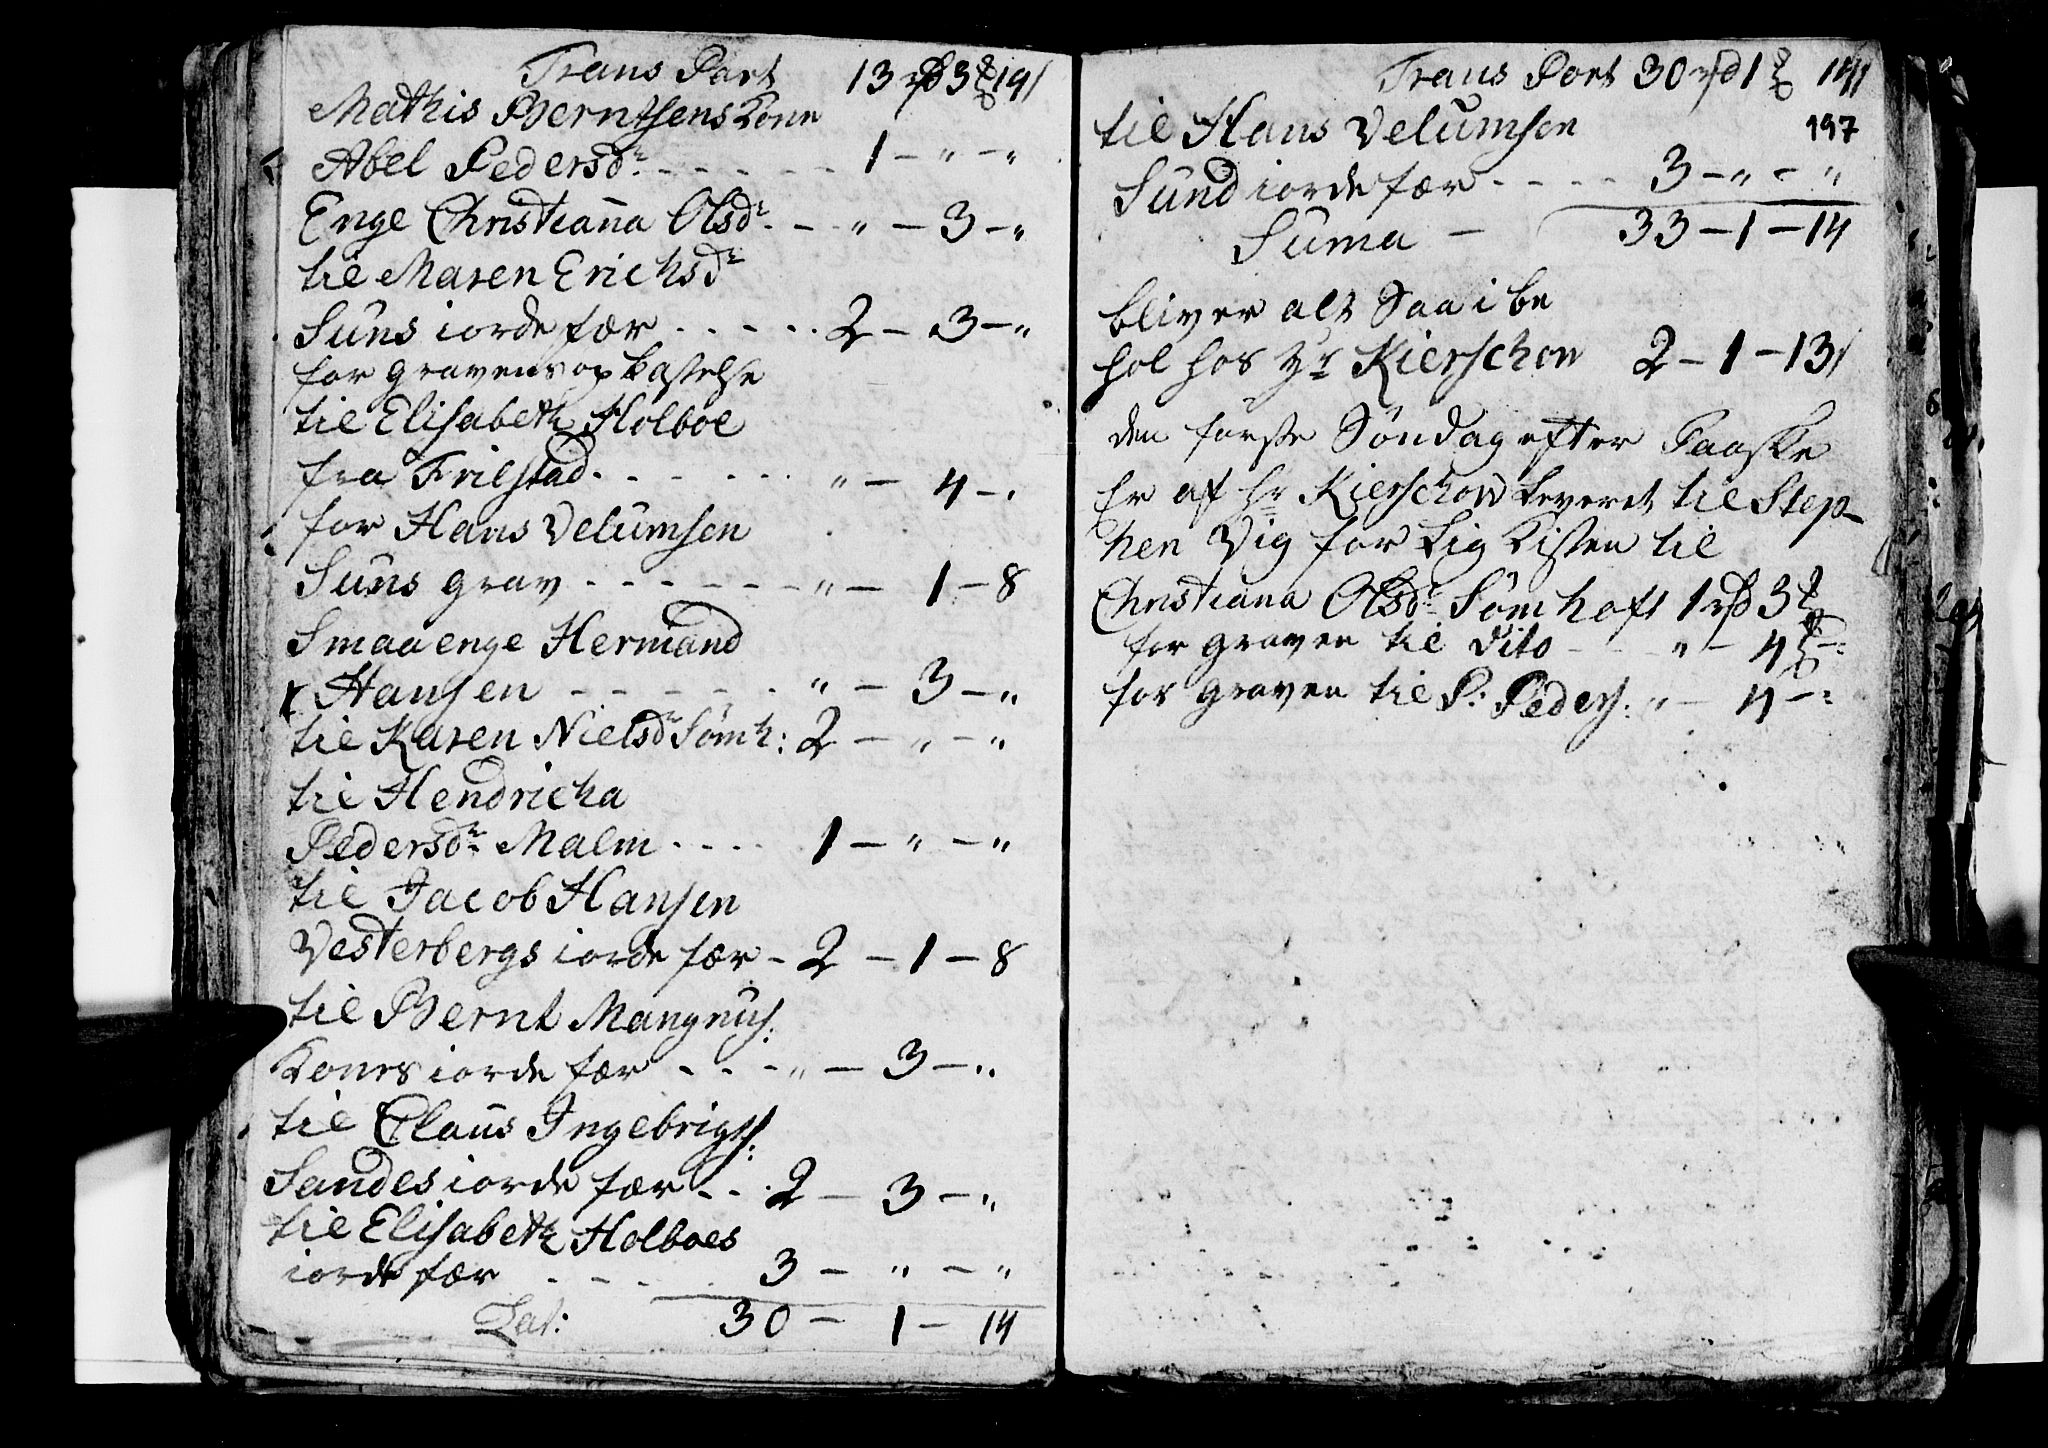 Trans Port 13 rd 3 ß 14
Mathis Berntsens Kone
Abel Pedersdr. - - - - - - 1 - " - "
Enge Christiana Olsdr. - - " - 3 - "
til Maren Erichsdr
Suns iorde fær . . . . . 2 - 3 - "
for gravens opkastelse
til Elisabeth Holboe
fra Trilstad. - - - - - " - 4 - "
for Hans Velumsen
Suns grav - - - - - - " - 1 - 8
Smaa enge Hermand
Hansen - - - - - - " - 3 - "
til Karen Nielsdr Sømh: 2 - " - "
til Hendricha
Pedersdr. Malm . . . . 1 - " - "
til Jacob Hansen
Vesterbergs iorde fær - 2 - 1 - 8
til Bernt Mangnus:
Kones iorde fær - - - " - 3 - "
til Claus Ingebrigts:
Sandes iorde fær - - . 2 - 3 - "
til Elisabeth Holboes
iorde fær - - - . 3 - " - "
Lat: 30 - 1 - 14
Trans Port 30 rd 1 ß 14
197
til Hans Velumsen
Sund iorde fær - - - - 3 - " - "
Suma - 33 - 1 - 14
bliver alt Saa i be
hol hos Hr Kierschow 2 - 1 - 13
den første Søndag efter Paaske
Er af Hr Kierschow Leveret til Step-
hen Vig for Lig Kisten til
Christiana Olsdr Sømhoft 1 rd 3 ß
for graven til dito - - " - 4 ß - "
for graven til P. Peders: " - 4 - "